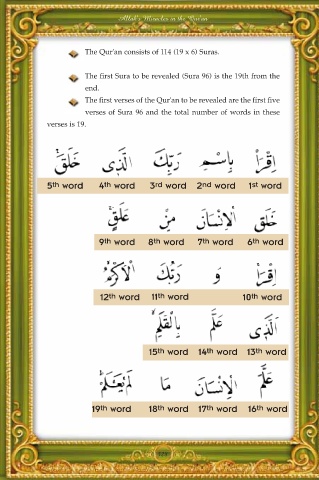 Allah's Miracles in the Qur'an
The Qur'an consists of 114 (19 x 6) Suras.
The first Sura to be revealed (Sura 96) is the 19th from the
end.
The first verses of the Qur'an to be revealed are the first five
verses of Sura 96 and the total number of words in these
verses is 19.
اِقْرَأْ بِاسْمِ رَبِّكَ الَّذٖى خَلَقَۚ
5th word 4th word 3rd word 2nd word 1st word
خَلَقَ الْاِنْسَانَ مِنْ عَلَقٍۚ
9th word 8th word 7th word 6th word
اِقْرَأْ وَ رَبُّكَ الْاَكْرَمُۙ
12th word 11th word 10th word
اَلَّذٖى عَلَّمَ بِالْقَلَمِۙ
15th word 14th word 13th word
عَلَّمَ الْاِنْسَانَ مَا لَمْ يَعْلَمْۜ
19th word 18th word 17th word 16th word